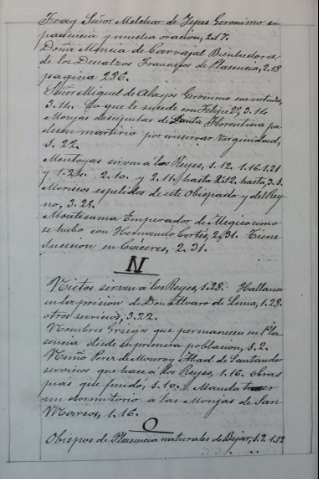 Fray Señor Melchor de Yepes Geronimo su
paciencia y mucha oracion, 2.17.
Doña Mencia de Carvajal Benhechora
de los Descalzos Franciscos de Plasencia, 2.18
pagina 226.
Señor Miguel de Abajos Geronimo
3.14. Lo que le sucede con Felipe 2º, 3.14
Monjas discipulas de Santa Florentina pa-
decen martirio por su virginidad,
3.22.
Montoyas sirven a los Reyes, 1.12. 1.16. 1.21
y 1.24. 2.10. y 2.11. hasta 2.12. hasta 3.1.
Moriscos espelidos de este Obispado y del Rey-
no, 3.28.
Montesuma Emperador de Megico como
se hubo con Hernando Cortes, 2.31. Tiene
sucesion en Cáceres, 2.31.
N
Nietos sirven a los Reyes, 1.28. Hallanse
en la prision de Don Alvaro de Luna, 1.28.
otros servicios, 3.22.
Nombres Griegos que permanecen en Pla-
sencia desde su primera poblacion, 1.2.
Nuño Perez de Monroy Abad de Santander
servicios que hace a los Reyes, 1.16. Obras
pias que fundó, 1.10. Manda
un dormitorio a las Monjas de San
Marcos, 1.16.
O
Obispos de Plasencia naturales de Bejar, 1.2. 1.12